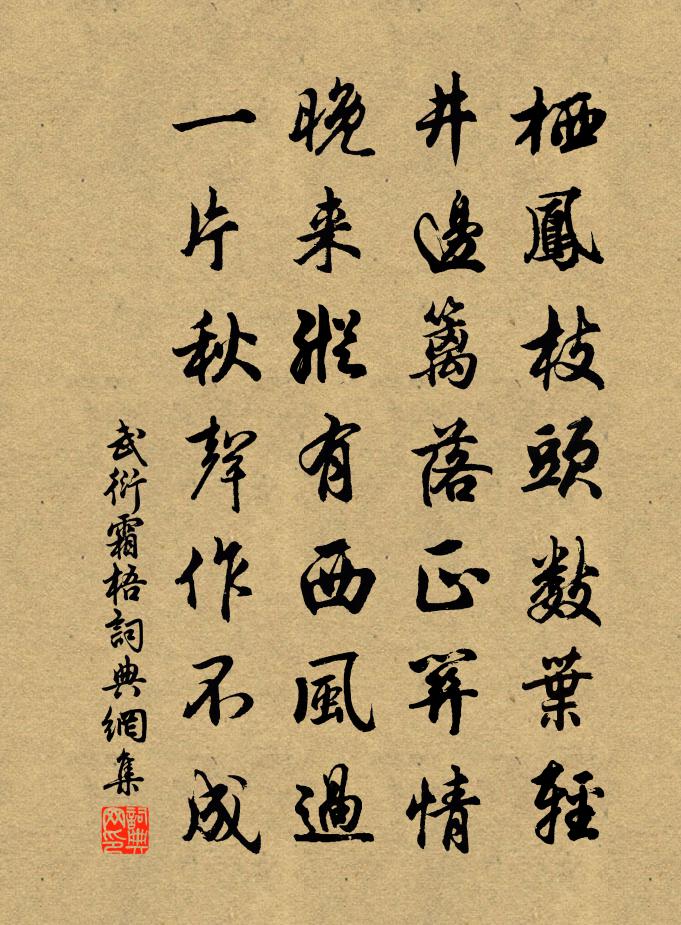 栖鳳枝頭數葉輕
井邊籬落正關情
晚来縱有西風過
一片秋聲作不成
武衍霜梧詞典網集
詞典网印